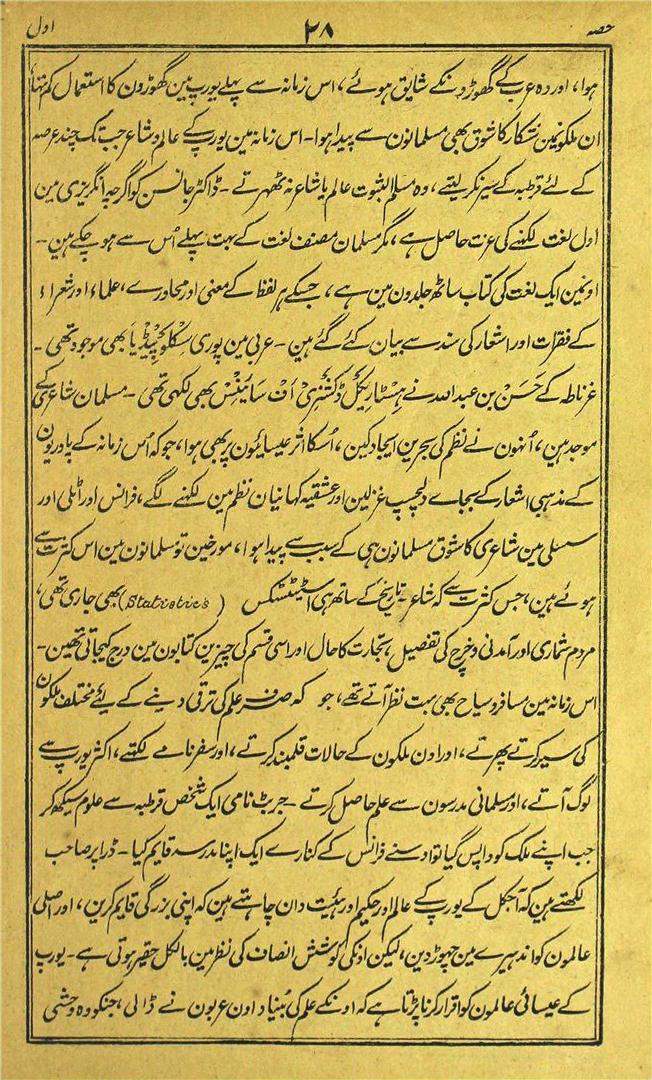 حصہ ۲۸ اول
ہوا، اور وہ عرب کے گھوڑونکے شایق ہوئے، اس زمانہ سے پہلے یورپ مین گھوڑون کا استعمال کم تھا،
ان ملکونمین شکار کا شوق بھی مسلمانون سے پیدا ہوا۔ اس زمانہ مین یورپ کے عالم و شاعر جب تک چند عرصہ
کے لئے قرطبہ کے سیر نکر لیتے، وہ مسلم الثبوت عالم یا شاعر نہ ٹھہرتے ۔ ڈاکٹر جانسن کو اگرچہ انگریزی مین
اول لغت لکھنے کی عزت حاصل ہے، مگر مسلمان مصنف لغت کے بہت پہلے اُس سے ہو چکے ہین ۔
اونمین ایک لغت کی کتاب ساٹھ جلدون مین ہے، جسکے ہر لفظ کے معنی اور محاورے، علماء اور شعراء
کے فقرات اور اشعار کی سند سے بیان کئے گئے ہین ۔ عربی مین پوری سکلوپیڈیا بھی موجود تھی ۔
غرناطہ کے حَسَن بن عبداللہ نے ہسٹاریکل ڈکشنری اف سائینس بھی لکھی تھی ۔ مسلمان شاعری کے
موجد ہین، اُنہون نے نظم کی بحرین ایجاد کین، اُسکا اثر عیسائیون پر بھی ہوا، جو کہ اُس زمانہ کے پادریون
کے مذہبی اشعار کے بجاے دلچسپ غزلین اور عشقیہ کہانیان نظم مین لکھنے لگے، فرانس اور اٹلی اور
سسلی مین شاعری کا شوق مسلمانون ہی کے سبب سے پیدا ہوا، مورخین تو مسلمانون مین اس کثرت سے
ہوئے ہین، جس کثرت سے کہ شاعر ۔ تاریخ کے ساتھ ہی اسٹیٹسٹکس (Statistics) بھی جاری تھی،
مردم شماری اور آمدنی و خرچ کی تفصیل، تجارت کا حال اور اسی قسم کی چیزین کتابون مین درج کیجاتی تھین ۔
اس زمانہ مین مسافر و سیاح بھی بہت نظر آتے تھے، جو کہ صرف علم کی ترقی دینے کے لیئے مختلف ملکون
کی سیر کرتے پھرتے، اور اون ملکون کے حالات قلمبند کرتے، اور سفر نامے لکھتے، اکثر یورپ سے
لوگ آتے، اور مسلمانی مدرسون سے علم حاصل کرتے ۔ جربٹ نامی ایک شخص قرطبہ سے علوم سیکھ کر
جب اپنے ملک کو واپس گیا تو اوسنے فرانس کے کنارے ایک اپنا مدرسہ قایم کیا ۔ ڈراپر صاحب
لکھتے ہین کہ آجکل کے یورپ کے عالم اور حکیم اور ہیئت دان چاہتے ہین کہ اپنی بزرگی قایم کرین، اور اصلی
عالمون کو اندہیرے مین چھوڑ دین، لیکن اونکی کوشش انصاف کی نظر مین بالکل حقیر ہوتی ہے ۔ یورپ
کے عیسائی عالمون کو اقرار کرنا پڑتا ہے کہ اونکے علم کی بنیاد اون عربون نے ڈالی، جنکو وہ وحشی